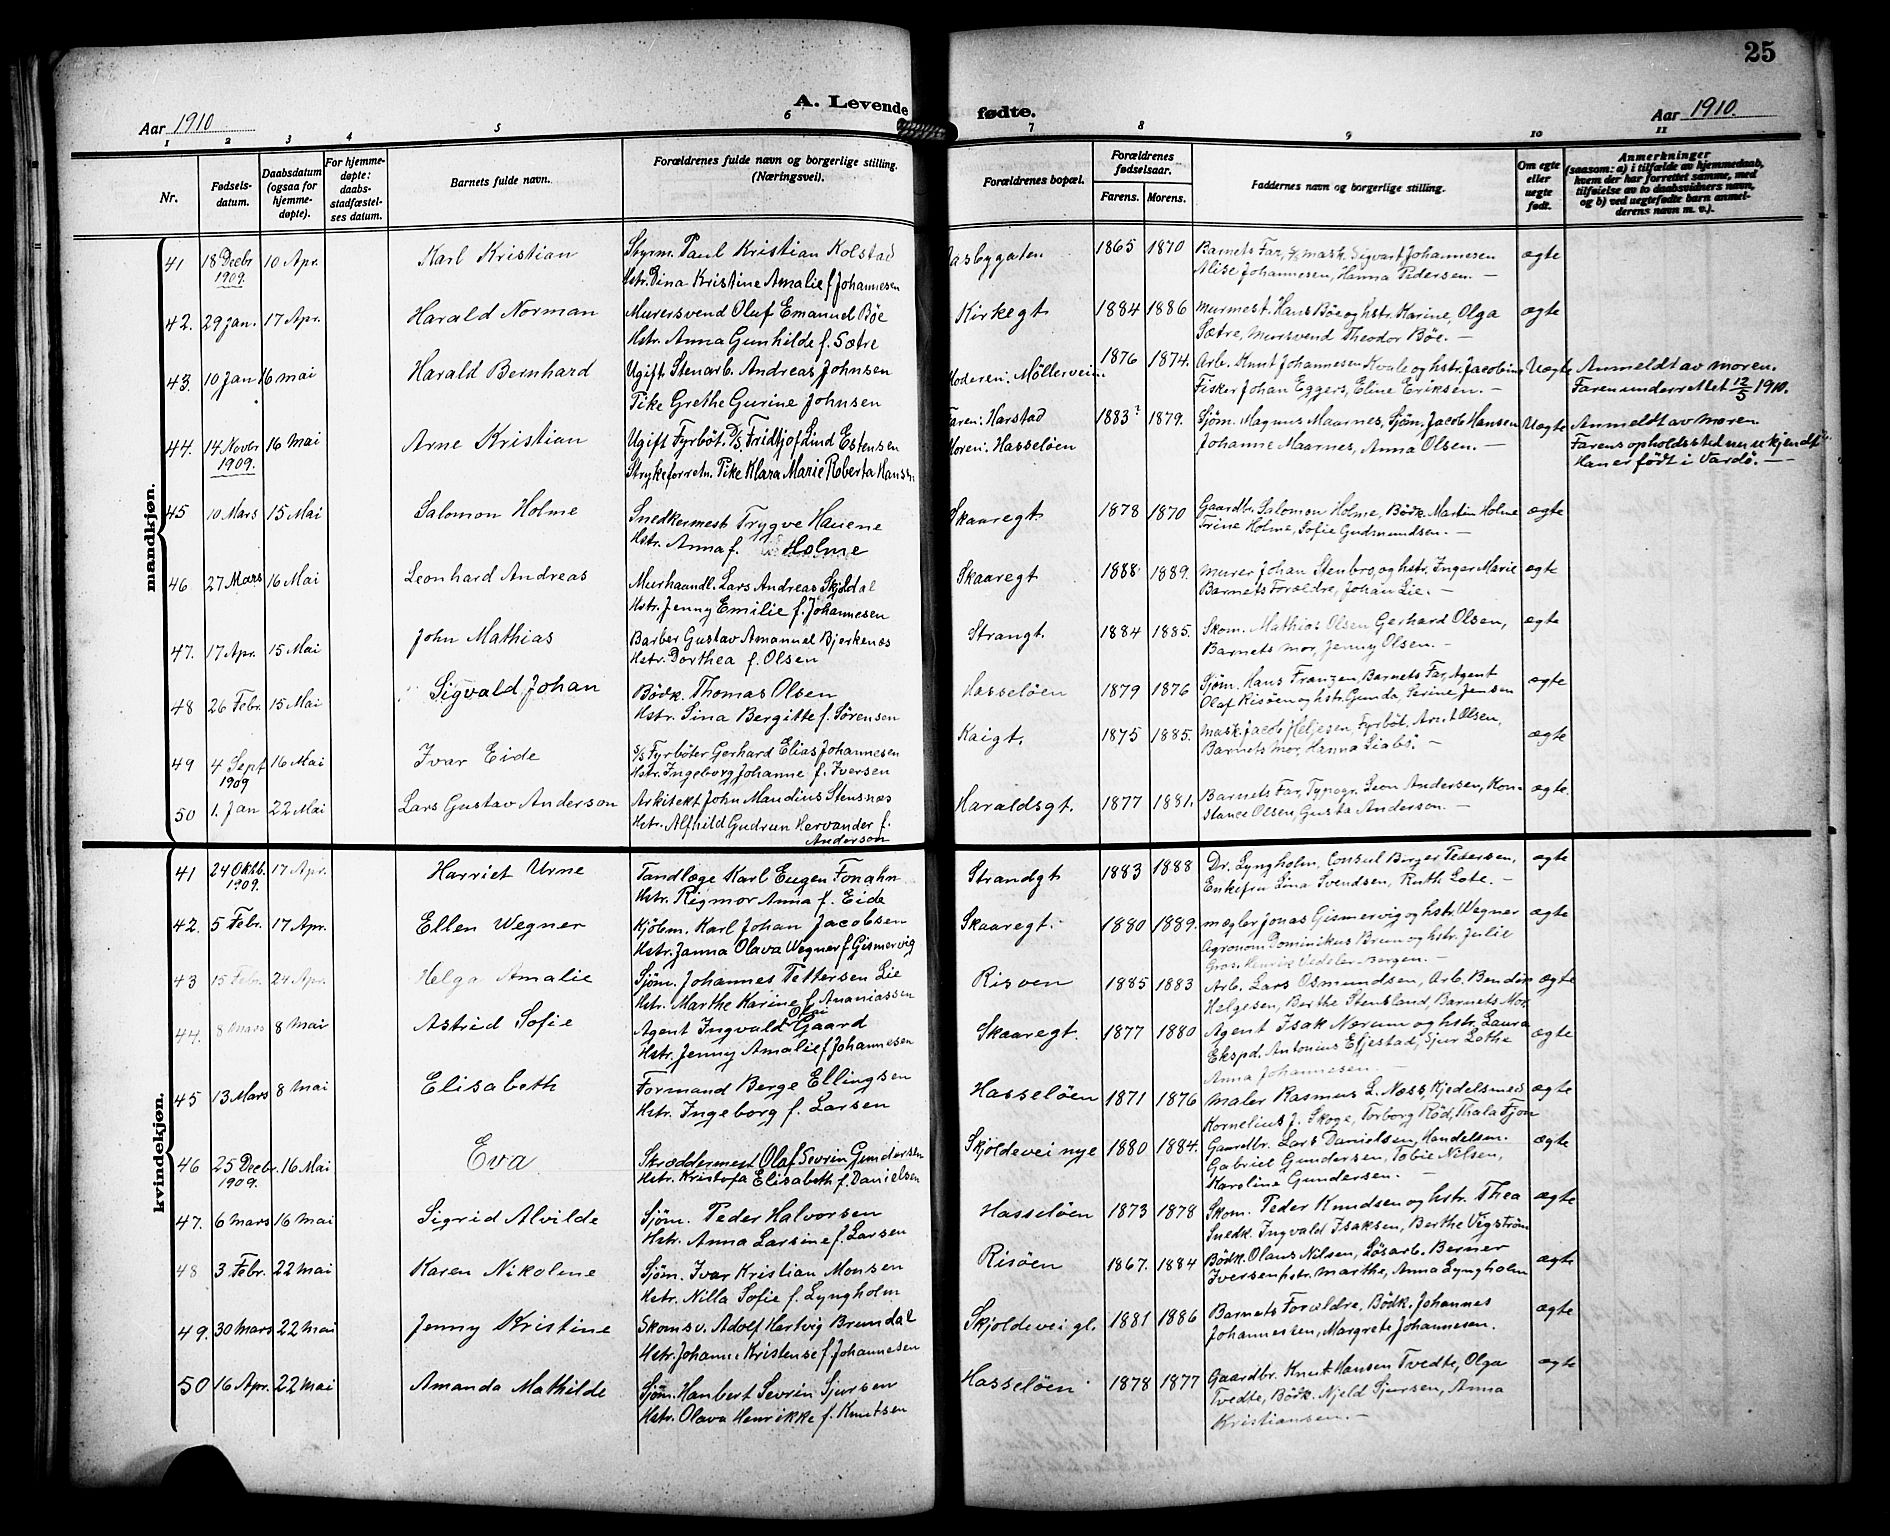 25
A. Levende fødte.
Aar 1910
Aar 1910.
1 2 3 4 5 6 7 8 9 10 11
Nr.
Fødsels-datum.
Daabsdatum (ogsaa for hjemme-døpte).
For hjemme-døpte: daabs-stadfæstel-ses datum.
Barnets fulde navn.
Forældrenes fulde navn og borgerlige stilling. (Næringsvei).
Forældrenes bopæl.
Forældrenes fødselsaar.
Farens. Morens.
Faddernes navn og borgerlige stilling.
Om egte eller uegte født.
Anmerkninger
(saasom: a) i tilfælde av hjemmedaab, hvem der har forrettet samme, med tilføielse av to daabsvidners navn, og b) ved uegtefødte barn anmel-derens navn m. v.).
mandkjøn.
41 18 Decbr 10 Apr. Karl Kristian Styrm. Paul Kristian Kolstad 1865 1870 Barnets Far, mask. Sigvart Johannesen ægte
1909. Hstr. Dina Kristine Amalie f. Johannesen Alise Johannesen, Hanna Pedersen. —
42. 29 Jan. 17 Apr. Harald Norman Murersvend Oluf Emanuel Bøe Kirkegt 1884 1886 Murmest. Hans Bøe og hstr. Karine, Olga ægte
Hstr. Anna Gunhilde f. Sætre Sætre, Mursvend Theodor Bøe. —
43. 10 Jan 16 Mai Harald Bernhard Ugift Stenarb. Andreas Johnsen Moderen: Møllervei 1876 1874. Arb. Knut Johannesen Kvale og hstr. Jacobine Uegte Anmeldt av moren.
Pike Grethe Gurine Johnsen Fisker Johan Eggers, Eline Eriksen. — Faren underrettet 12/5 1910.
44. 14 Novbr 16 Mai Arne Kristian Ugift Fyrbøt. D/S Fridtjof Lind Estensen Faren: Harstad 1883? 1879. Sjøm. Magnus Maarnes, Sjøm. Jacob Hansen Uegte Anmeldt av moren.
1909. Strykeforretn. Pike Klara Marie Roberta Hansen Moren: Hasseløen Johanne Maarnes, Anna Olsen. — Farens opholdssted nu ukjendt
Han er født i Vardø. —
45 10 Mars 15 Mai Salomon Holme Snedkermest Trygve Hauene Skaaregt. 1878 1870 Gaardbr. Salomon Holme, Bødk. Martin Holme ægte
Hstr. Anna f. Holme Trine Holme, Sofie Gudmundsen. —
46 27 Mars 16 Mai Leonhard Andreas Murhaandl. Lars Andreas Skjoldal Skaaregt 1888 1889. Murer Johan Stenbro, og hstr. Inger Marie ægte
Hstr. Jenny Emilie f. Johannesen Barnets Forældre, Johan Lie. —
47. 17 Apr. 15 Mai John Mathias Barber Gustav Amanuel Bjerkenæs Strangt. 1884 1885. Skom. Mathias Olsen Gerhard Olsen, ægte
Hstr. Dorthea f. Olsen Barnets mor, Jenny Olsen. —
48 26 Febr. 15 Mai Sigvald Johan Bødk. Thomas Olsen Hasseløen 1879 1876 Sjøm. Hans Franzen, Barnets Far, Agent ægte
Hstr. Sina Bergitte f. Sørensen Olaf Risøen og hstr. Gunda, Serine Jensen
49 4 Sept 16 Mai Ivar Eide S/S Fyrbøter Gerhard Elias Johannesen Kaigt. 1875 1885. Mask. Jacob Heljesen, Fyrbøt. Arnt Olsen, ægte
1909 Hstr. Ingeborg Johanne f. Iversen Barnets mor, Hanna Siabø. —
50 1. Jan 22 Mai Lars Gustav Anderson Arkitekt John Maudius Stensnæs Haraldsgt. 1877 1881. Barnets Far, Typogr. Leon Andersen, Kon- ægte.
Hstr. Alfhild Gudrun Hervander f. Anderson stance Olsen, Gusta Anderson. —
kvindekjøn.
41 24 Oktb. 17 Apr. Harriet Urne Tandlæge Karl Eugen Fonahn Strandgt 1883 1888 Dr. Lyngholm, Consul Berger Pedersen, ægte
1909. Hstr. Rigmor Anna f. Eide Enkefru Lina Svendsen, Ruth Lote. —
42. 5 Febr. 17 Apr. Ellen Wegner Kjøbm. Karl Johan Jacobsen Skaaregt. 1880 1889. Megler Jonas Gismervig og hstr. Wegner ægte
Hstr. Janna Olava Wegner f. Gismervig Agronom Dominikus Brun og hstr. Julie
Gros. Henrik Vedeler. Bergen. —
43 15 Febr. 24 Apr. Helga Amalie Sjøm. Johannes Pettersen Lie Risøen 1885 1883 Arb. Lars Osmundsen, Arb. Bendik ægte
Hstr. Marthe Karine f. Ananiassen Helgesen, Berthe Stensland, Barnets Mor
44. 8 Mars 8 Mai Astrid Sofie Agent Ingvald Olai Gaard Skaaregt. 1877 1880 Agent Isak Nærum og hstr. Laura ægte
Hstr. Jenny Amalie f. Johannesen Ekspd. Antonius Efjestad, Sjur Lothe
Anna Johannesen. —
45 13 Mars 8 Mai Elisabeth Formand Berge Ellingsen Hasseløen 1871 1876 Maler Rasmus L. Næss, Kjedelsmed ægte
Hstr. Ingeborg f. Larsen Kornelius J. Skoge, Torborg Rød, Thala Fjon
46 25 Decbr. 16 Mai Eva Skræddermest Olaf Sevrin Gundersen Skjoldevei nye 1880 1884. Gaardbr. Lars Danielsen, Handelsm. ægte
1909. Hstr. Kristofa Elisabeth f. Danielsen Gabriel Gundersen, Tobie Nilsen,
Karoline Gundersen. —
47. 6 Mars 16 Mai Sigrid Alvilde Sjøm. Peder Halvorsen Hasseløen 1873 1878 Skom. Peder Knudsen og hstr. Thea ægte
Hstr. Anna Larsine f. Larsen Snedk. Ingvald Isaksen, Berthe Vigstrøm
48 3 Febr. 22 Mai Karen Nikoline Sjøm. Ivar Kristian Monsen Risøen 1867. 1884 Bødk. Olaus Nilsen, Løsarb. Berner ægte
Hstr. Nilla Sofie f. Lyngholm Iversen hstr. Marthe, Anna Lyngholm
49. 30 Mars 22 Mai Jenny Kristine Skomsv. Adolf Hertvig Brundal Skjoldevei gl. 1881 1886 Barnets Forældre, Bødk. Johannes ægte
Hstr. Johanne Kristense f. Johannesen Johannessen, Margrete Johannesen.
50 16 Apr. 22 Mai Amanda Mathilde Sjøm. Hanbert Sevrin Sjursen Hasseløen 1878 1877 Gaardbr. Knut Hansen Tvedte, Olga ægte
Hstr. Olava Henrikke f. Knutsen Tvedte, Bødk. Njeld Sjursen, Anna
Kristiansen. —